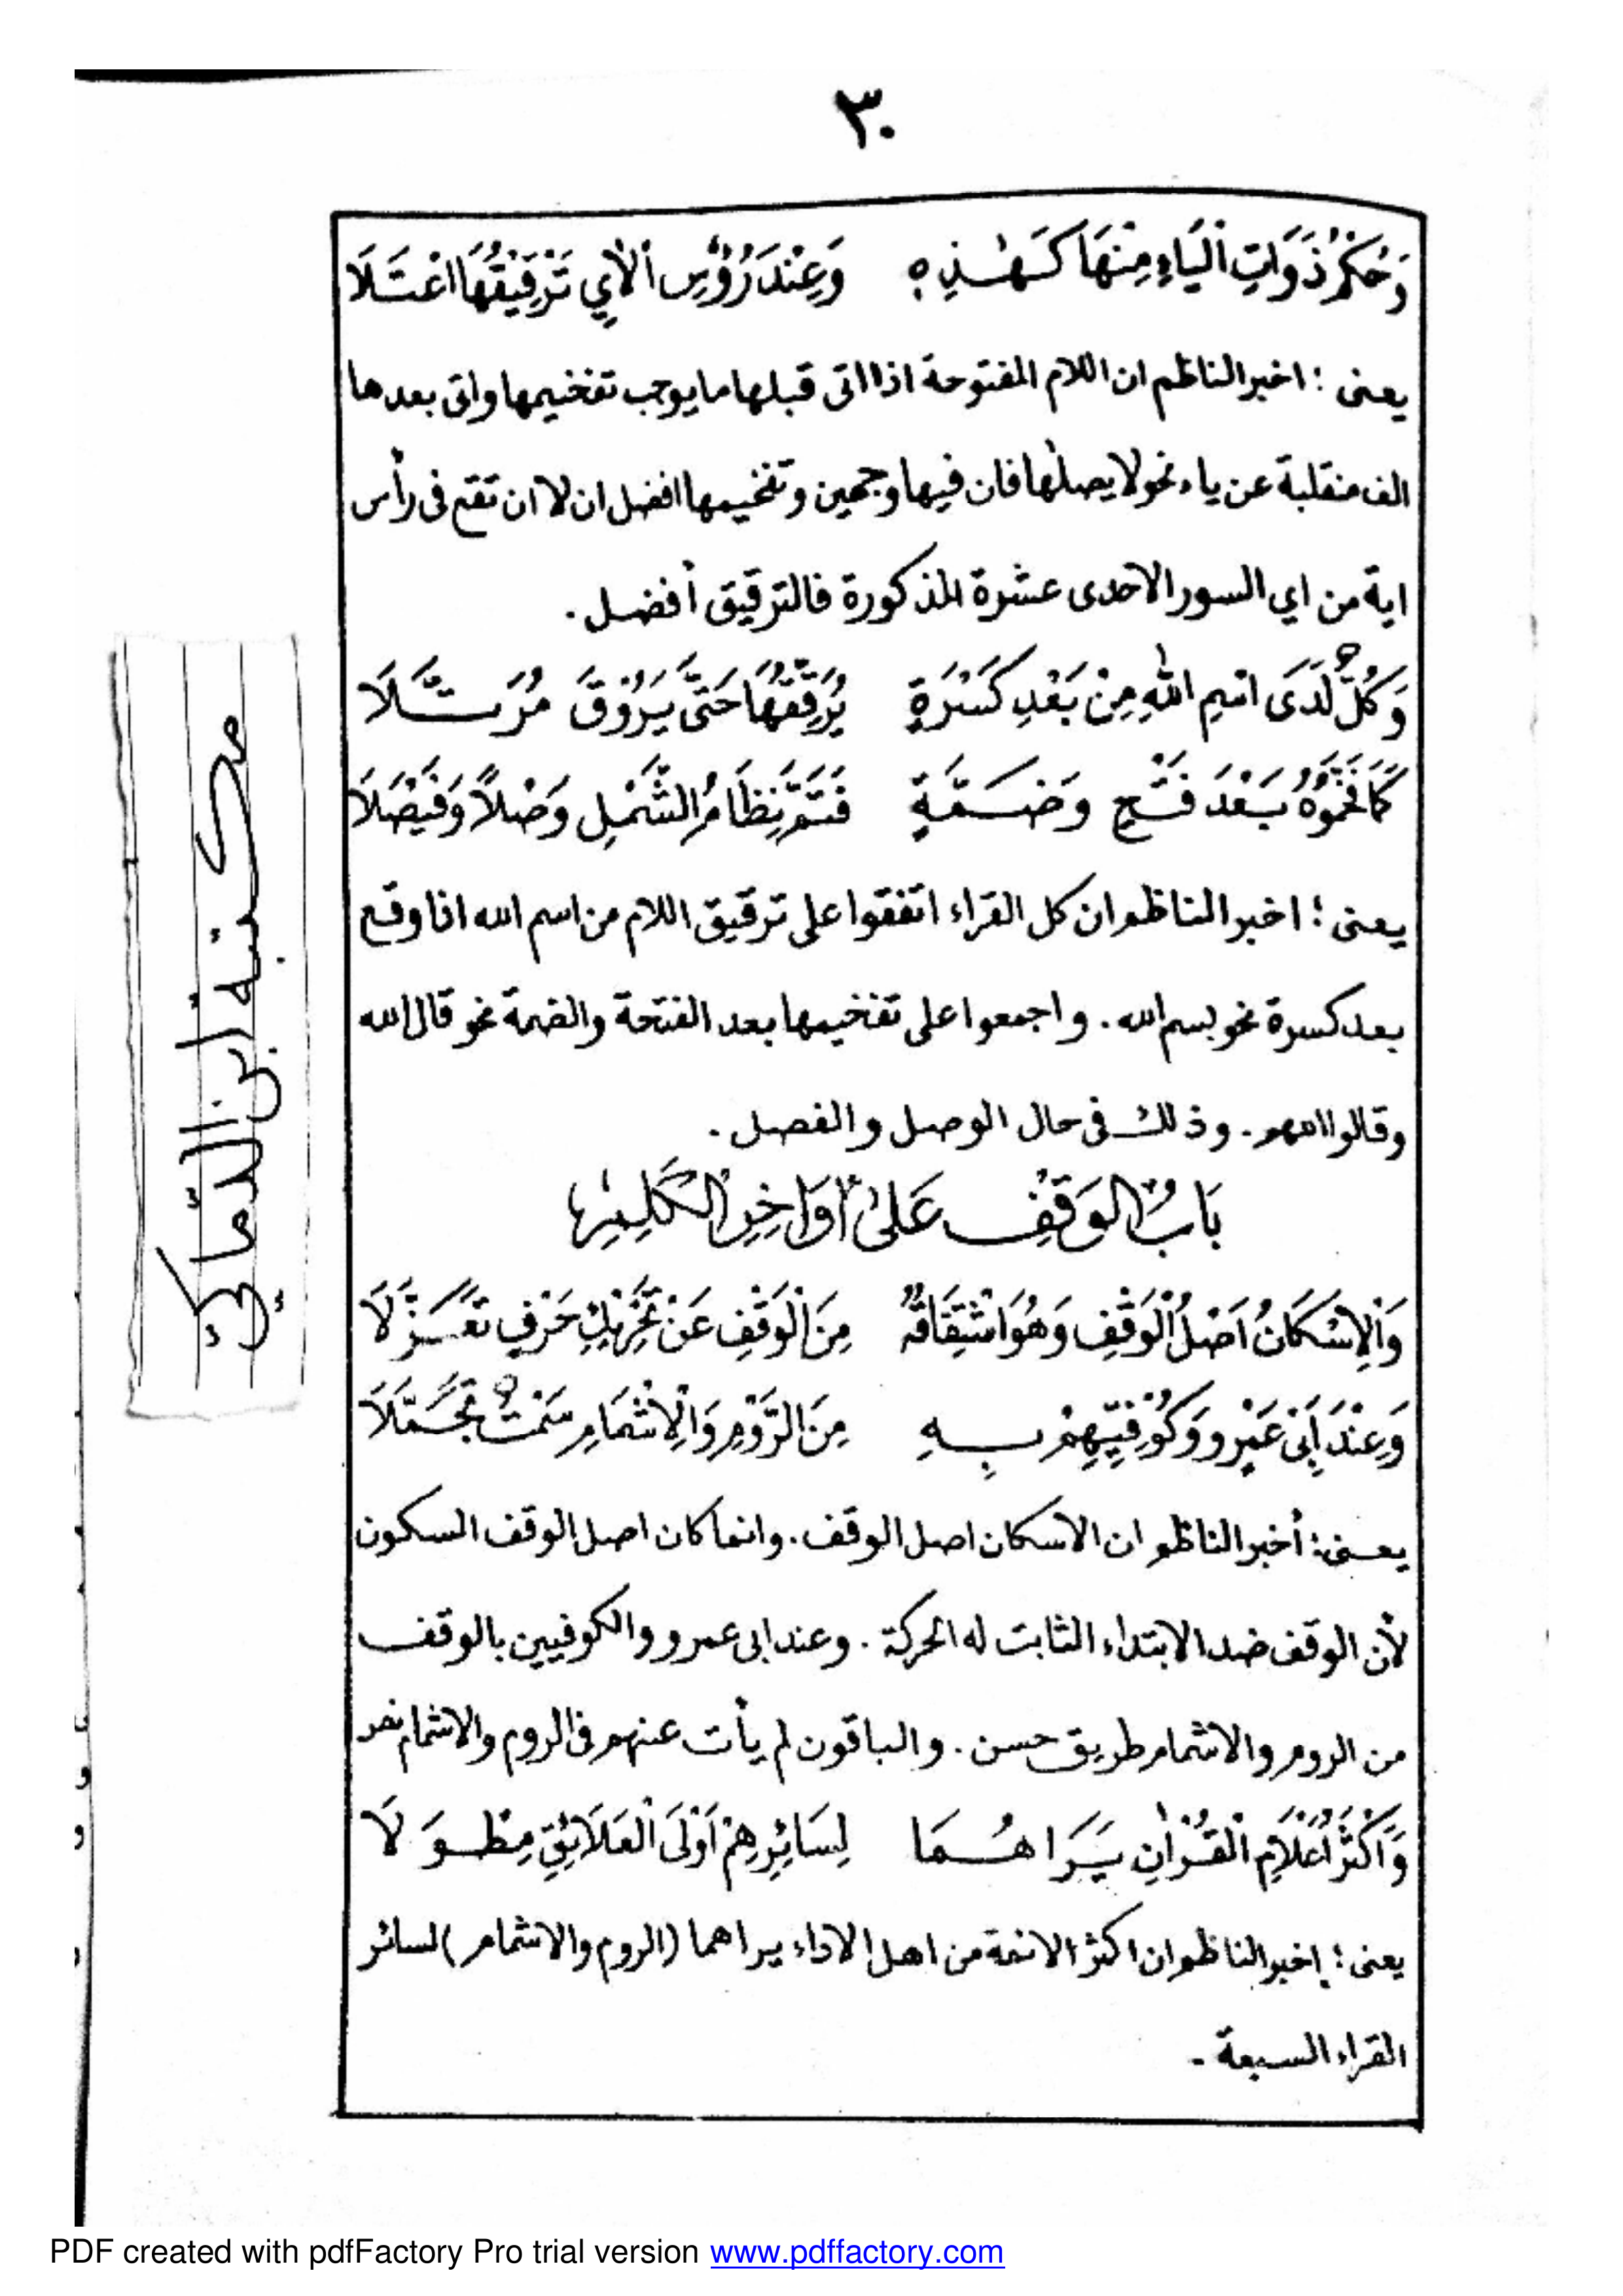 ٣٠
وَحُكْمُ ذَوَاتِ الْيَاءِ مِنْهَا كَهٰذِهِ وَعِنْدَ رُؤُسِ الْأٰيِ تَرْقِيْقُهَا اعْتَلَا
يعنى : اخبر الناظم ان اللام المفتوحة اذا اتى قبلها ما يوجب تفخيمها واتى بعدها
الف منقلبة عن ياء نحو لا يصلها فان فيها وجهين وتفخيمها افضل ان لا ان تقع فى رأس
اية من اي السور الاحدى عشرة المذكورة فالترقيق أفضل .
وَكُلٌّ لَدَى اسْمِ اللهِ مِنْ بَعْدِ كَسْرَةٍ يُرَقِّقُهَا حَتَّى يَرُوْقَ مُرَتَّلَا
كَمَا فَخَّمُوْهُ بَعْدَ فَتْحٍ وَضَمَّةٍ فَتَمَّ نِظَامُ الشَّمْلِ وَصْلًا وَفَيْصَلَا
يعنى : اخبر الناظم ان كل القراء اتفقوا على ترقيق اللام من اسم الله اذا وقع
بعد كسرة نحو بسم الله . واجمعوا على تفخيمها بعد الفتحة والضمة نحو قال الله
وقالوا اللهم . وذلك فى حال الوصل والفصل .
بَابُ الوَقْفِ عَلىٰ أَوَاخِرِ الْكَلِمِ
وَالْاِسْكَانُ اَصْلُ الْوَقْفِ وَهُوَ اشْتِقَاقُهُ مِنَ الْوَقْفِ عَنْ تَحْرِيْكِ حَرْفٍ تَعَزَّلَا
وَعِنْدَ اَبِىْ عَمْرٍو وَكُوْفِيِّهِمْ بِهِ مِنَ الرَّوْمِ وَالْاِشْمَامِ سَمْتٌ تَجَمَّلَا
يعنى : أخبر الناظم ان الاسكان اصل الوقف . وانما كان اصل الوقف السكون
لأن الوقف ضد الابتداء الثابت له الحركة . وعند ابى عمرو والكوفيين بالوقف
من الروم والاشمام طريق حسن . والباقون لم يأت عنهم فى الروم والاشمام نص
وَاَكْثَرُ اَعْلَامِ الْقُرْاٰنِ يَرَاهُمَا لِسَائِرِهِمْ اَوْلَى الْعَلَائِقِ مِطْوَلَا
يعنى : إخبر الناظم ان اكثر الائمة من اهل الاداء يراهما (الروم والاشمام) لسائر
القراء السبعة .
مكتبة ابن الدّماكيّ
PDF created with pdfFactory Pro trial version www.pdffactory.com